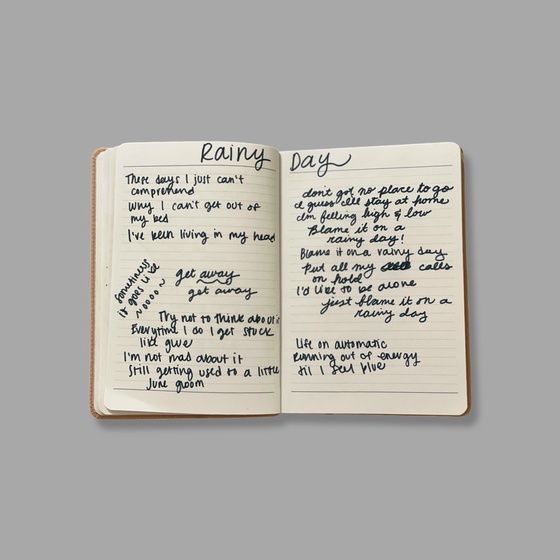 Rainy Day
These days I just can't
comprehend
Why I can't get out of
my bed
I've been living in my head
Sometimes
it goes like
~oooo~
get away
get away
Try not to think about it
Everytime I do I get stuck
like glue
I'm not mad about it
Still getting used to a little
June gloom
don't got no place to go
I guess I'll stay at home
I'm feeling high & low
Blame it on a
rainy day!
Blame it on a rainy day
Put all my calls
on hold
I'd like to be alone
just blame it on a
rainy day
Life on automatic
Running out of energy
til I feel blue